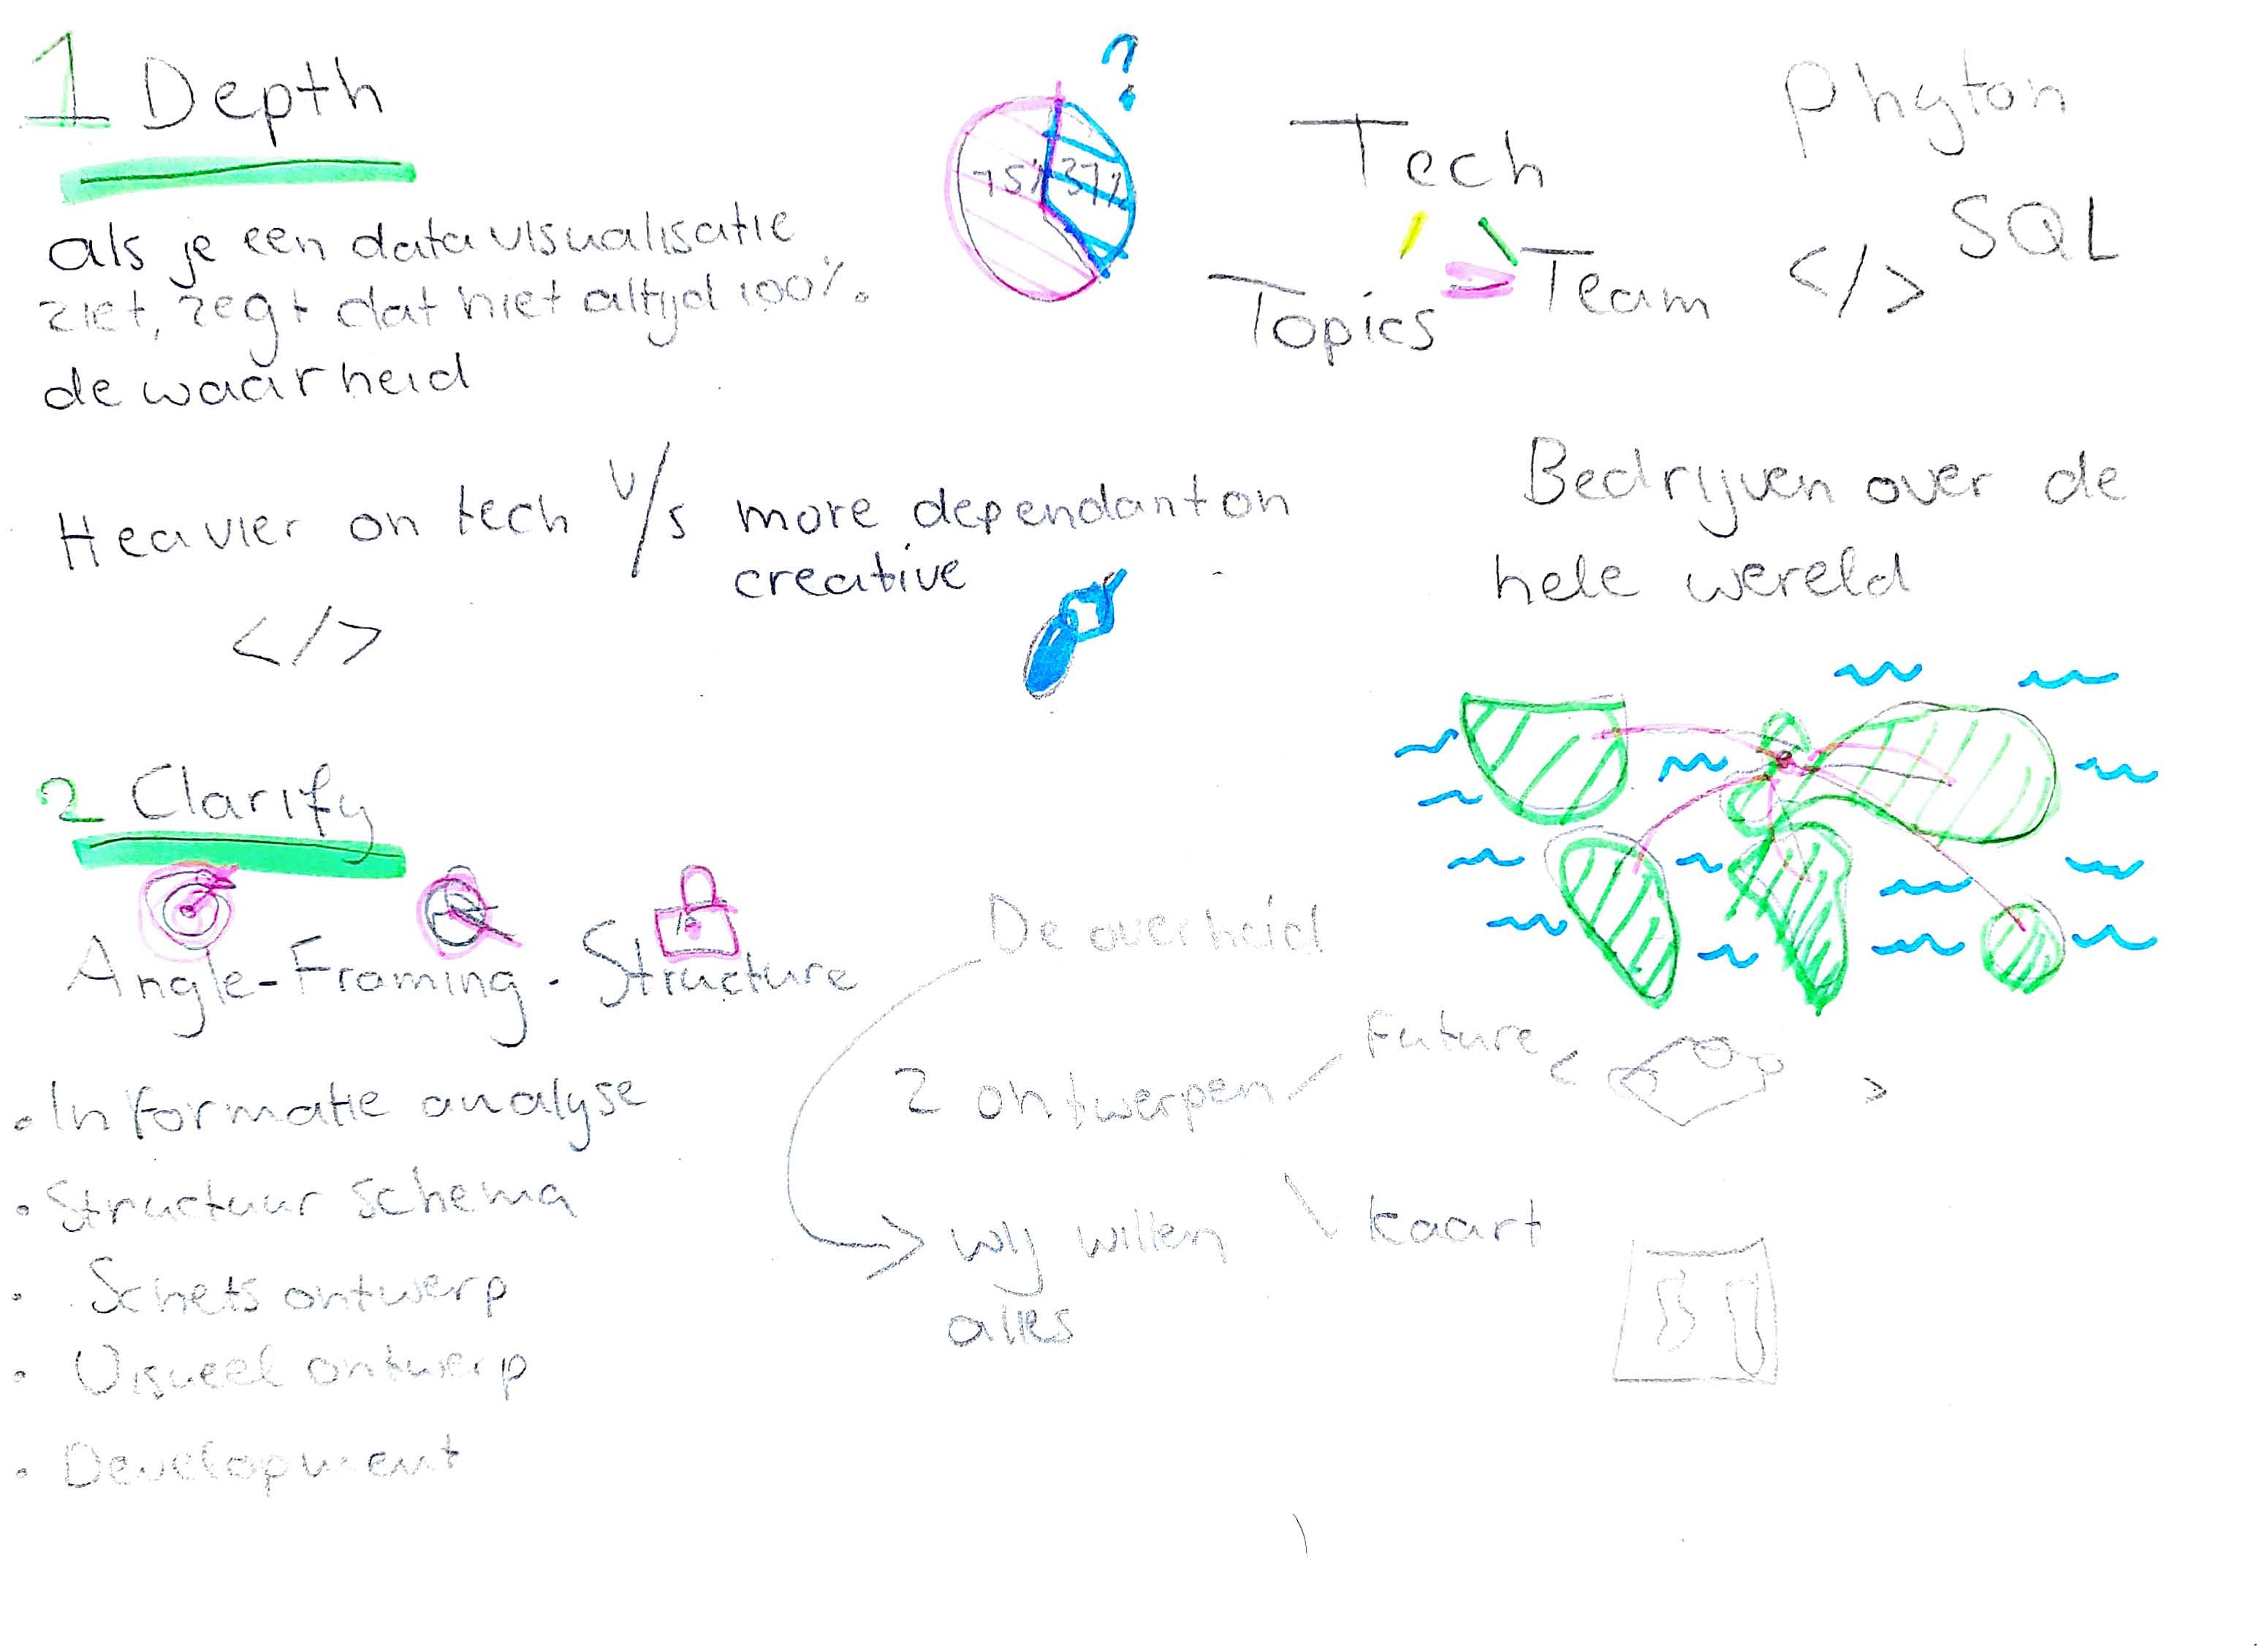 1 Depth
als je een data visualisatie
ziet, zegt dat niet altijd 100%
de waarheid
?
75% 37%
Tech
Topics Team
Phyton
SQL
</>
Heavier on tech v/s more dependant on
creative
</>
Bedrijven over de
hele wereld
2 Clarify
Angle-Framing. Structure
• Informatie analyse
• Structuur schema
• Schets ontwerp
• Visueel ontwerp
• Development
De overheid
wij willen
alles
2 ontwerpen
Future < >
kaart